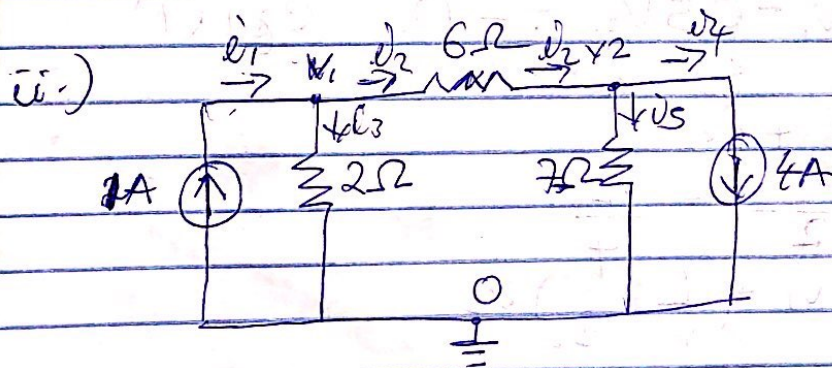 ii.)
i1 V1 i2 6Ω i2 V2 i4
i3 i5
1A 2Ω 7Ω 4A
0